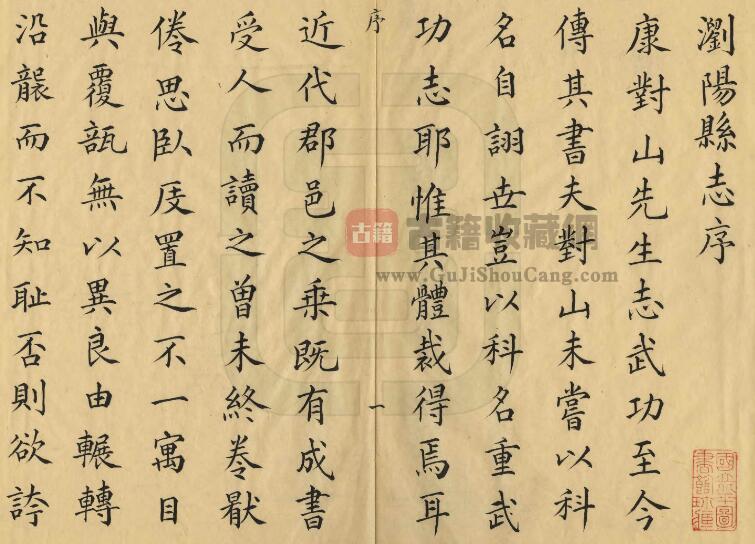 瀏陽縣志序
康對山先生志武功至今
傳其書夫對山未嘗以科
名自詡世豈以科名重武
功志耶惟其體裁得焉耳
序
一
近代郡邑之乗既有成書
受人而讀之曾未終卷厭
倦思臥庋置之不一寓目
與覆瓿無以異良由輾轉
沿襲而不知恥否則欲誇
古籍
古籍收藏網
www.GuJiShouCang.com